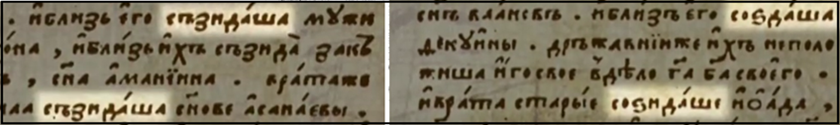 . и҆близь є҆го съзида́ша мꙋжи
ѻ́на , и҆бли́зьи҆́хъ съзида̀ закъ̀
ъ , сн҃а а҆мані́ина . врата́же
наа съзида́ша сн҃ове а҆сана́евы .
сиⷩ҇ вла́висвъ . и҆бли́зъего соꙃда́ша
декꙋи҆́ны . дръжавні́иже и҆́хъ неполо
жиша и҆́гоское в̾дѣло гⷭ҇а ба҃своего̀ .
и҆врата̀ старыѐ соꙃида́ше и҆оа́да ,